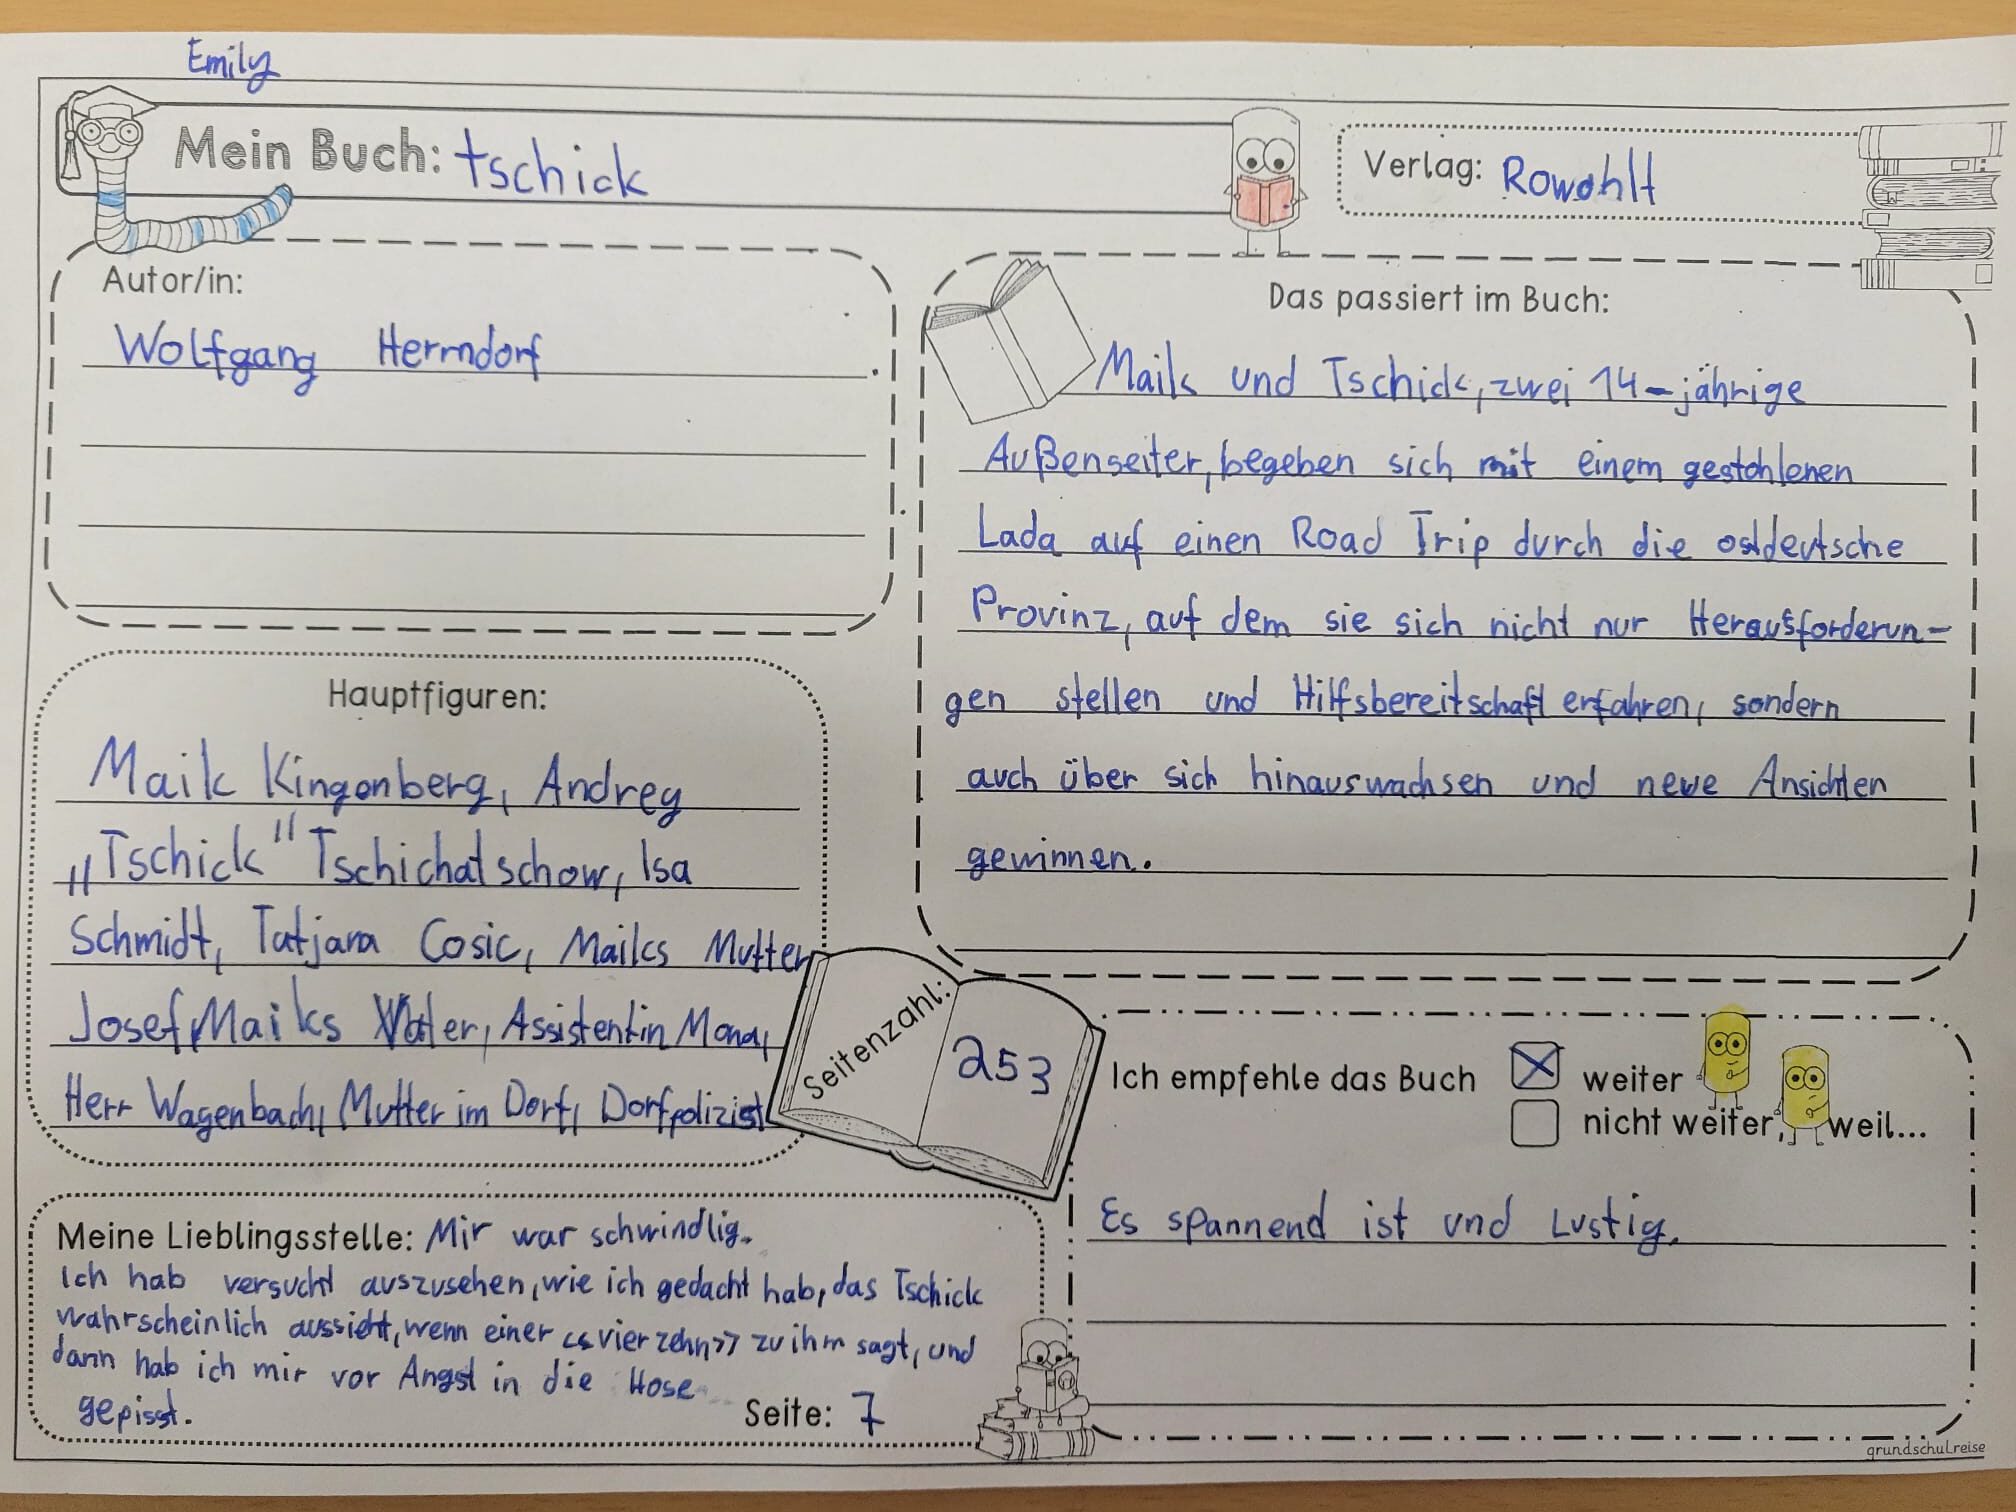 Emily
Mein Buch: tschick
Verlag: Rowohlt
Autor/in:
Wolfgang Herrndorf
Das passiert im Buch:
Maik und Tschick, zwei 14-jährige
Außenseiter, begeben sich mit einem gestohlenen
Lada auf einen Road Trip durch die ostdeutsche
Provinz, auf dem sie sich nicht nur Herausforderun-
gen stellen und Hilfsbereitschaft erfahren, sondern
auch über sich hinauswachsen und neue Ansichten
gewinnen.
Hauptfiguren:
Maik Kingenberg, Andrey
„Tschick" Tschichatschow, Isa
Schmidt, Tatjana Cosic, Maiks Mutter
Josef, Maiks Vater, Assistentin Mona,
Herr Wagenbach, Mutter im Dorf, Dorfpolizist
Seitenzahl: 253
Ich empfehle das Buch
weiter
nicht weiter, weil...
Es spannend ist und Lustig.
Meine Lieblingsstelle: Mir war schwindlig.
Ich hab versucht auszusehen, wie ich gedacht hab, das Tschick
wahrscheinlich aussieht, wenn einer <<vierzehn>> zu ihm sagt, und
dann hab ich mir vor Angst in die Hose
gepisst.
Seite: 7
grundschulreise